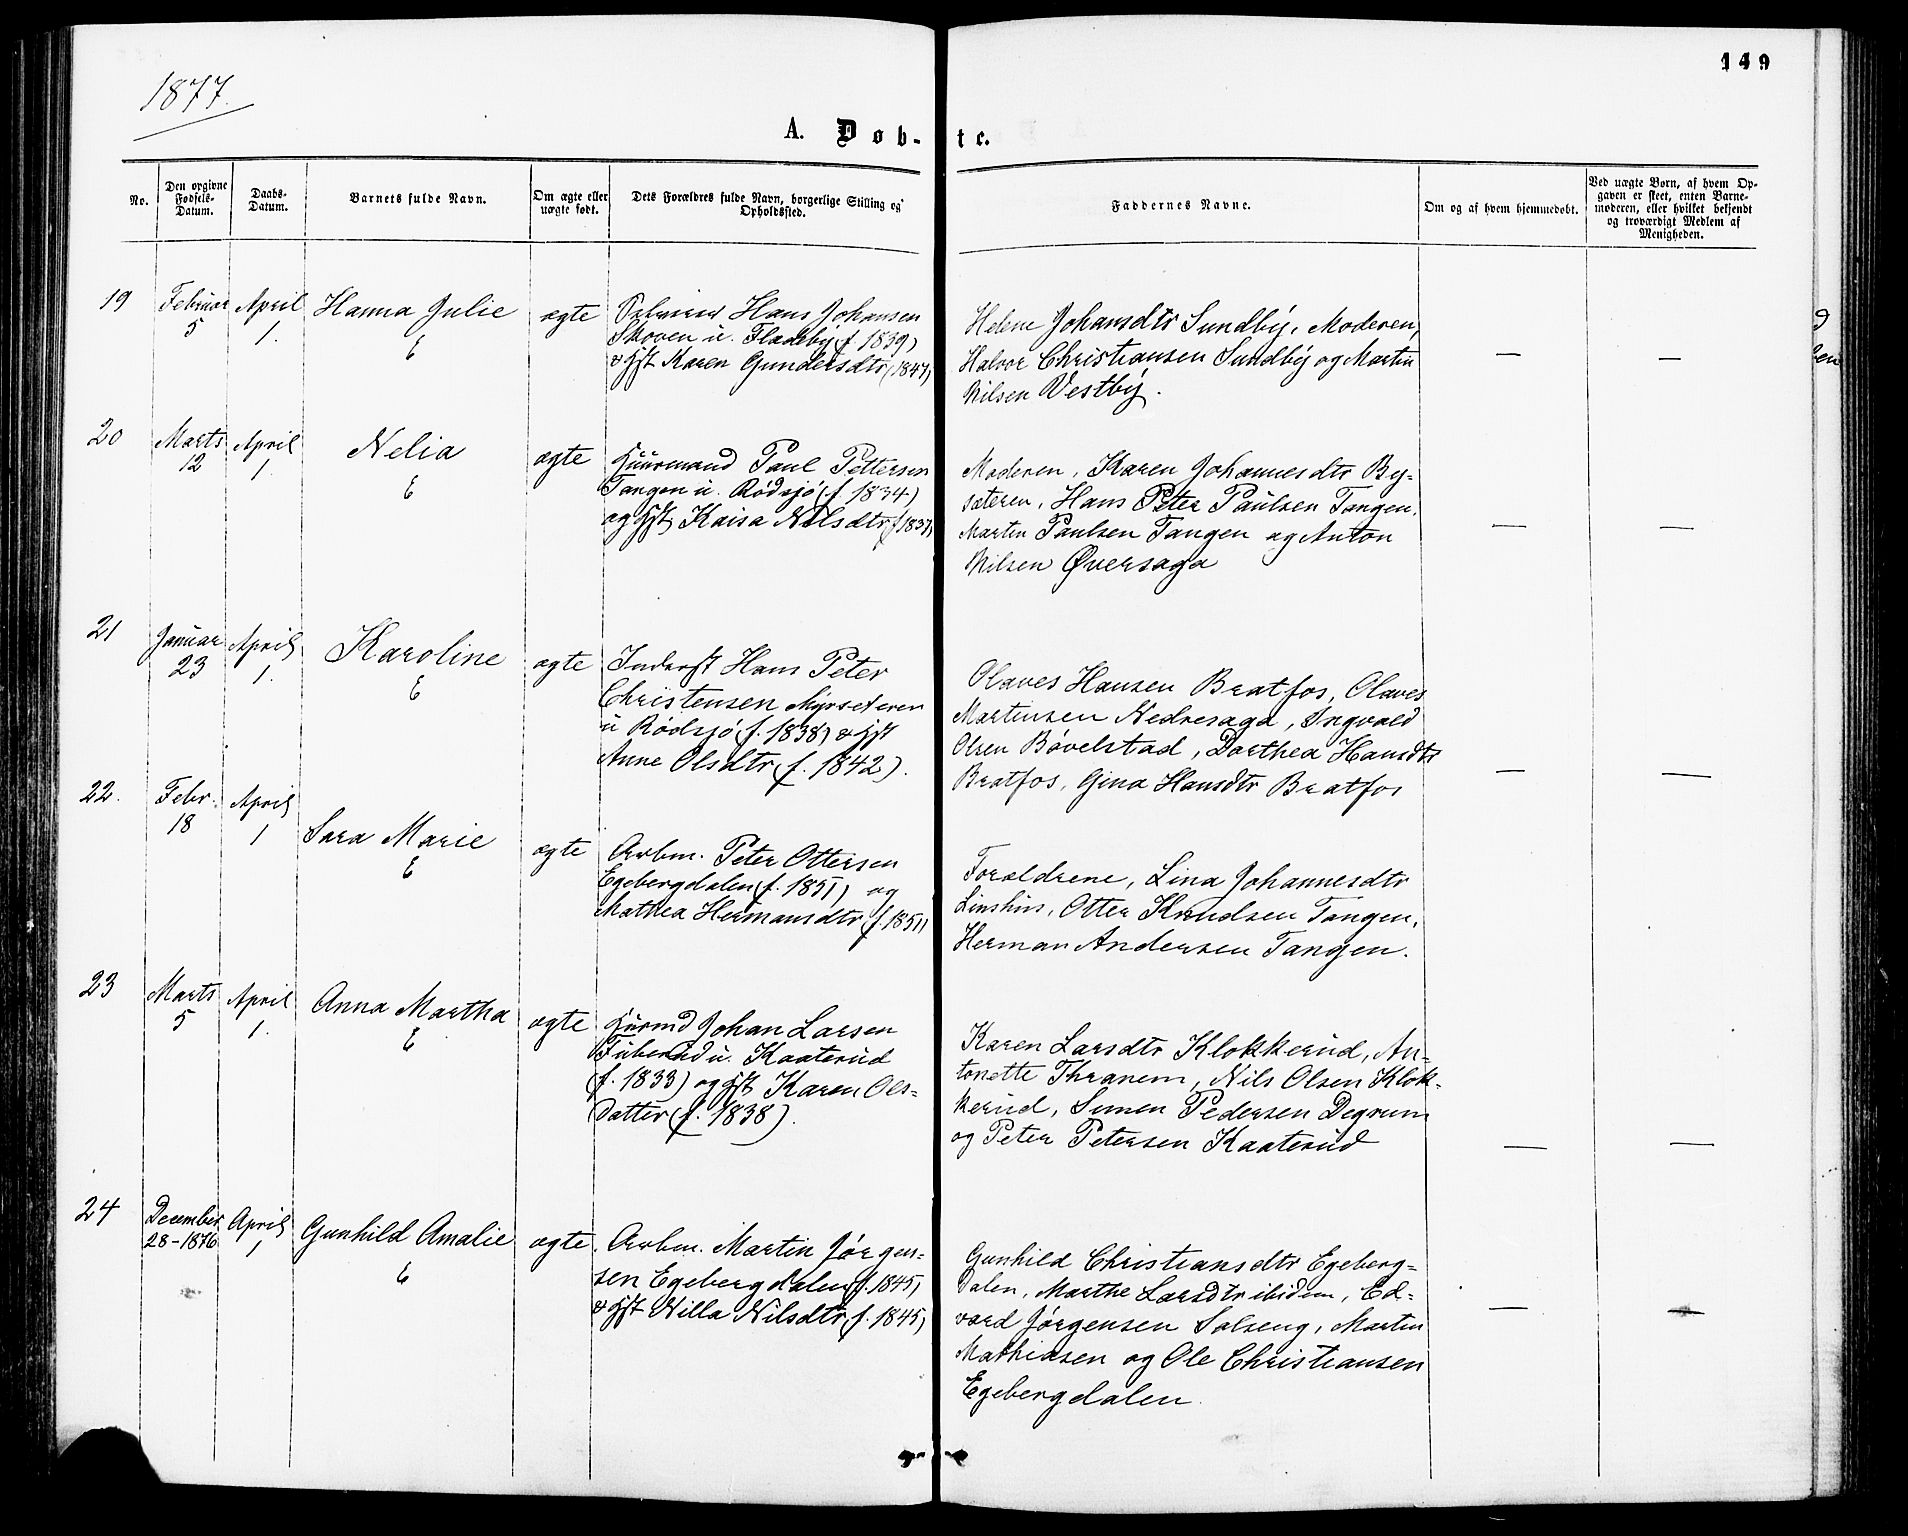 149
1877.
A. Døb-
te.
No.
Den opgivne
Fødsels-
Datum.
Daabs-
Datum.
Barnets fulde Navn.
Om ægte eller
uægte født.
Dets Forældres fulde Navn, borgerlige Stilling og
Opholdssted.
Faddernes Navne.
Om og af hvem hjemmedøbt.
Ved uægte Børn, af hvem Op-
gaven er skeet, enten Barne-
moderen, eller hvilket bekjendt
og troværdigt Medlem af
Menigheden.
19
Februar
5
April
1.
Hanna Julie
E
ægte
Hans Johansen
Skoven u. Fladeby (f. 1839)
& Gift Karen Gundersdtr (1847)
Helene Johansdtr Sundby, Moderen,
Halvor Christiansen Sundby og Martin
Nilsen Vestby.
—
—
20
Marts
12
April
1.
Nelia
E
ægte
Huusmand Paul Pettersen
Tangen u. Rødsjø (f. 1834)
og Gift Kaisa Nilsdtr (f. 1837)
Moderen, Karen Johannesdtr By-
sæteren, Hans Peter Paulsen Tangen,
Martin Paulsen Tangen og Anton
Nilsen Øversaga
—
—
21
Januar
23
April
1.
Karoline
E
ægte
Inderst Hans Peter
Christensen Myrseteren
u Rødsjø (f. 1838) & Gift
Anne Olsdtr (f. 1842).
Olaves Hansen Bratfos, Olaves
Martinsen Nedresaga, Ingvald
Olsen Bøvelstad, Dorthea Hansdtr
Bratfos, Gina Hansdtr Bratfos
—
—
22.
Febr.
18
April
1
Sara Marie
E
ægte
Arbm. Peter Ottersen
Egebergdalen (f. 1851) og
Mathea Hermansdtr (f. 1851)
Forældrene, Lina Johannesdtr
Otter Knudsen Tangen,
Herman Andersen Tangen.
23
Marts
5
April
1.
Anna Martha
E
ægte
Husmd Johan Larsen
u. Kaaterud
(f. 1833) og Gift Karen Ols-
datter (f. 1838).
Karen Larsdtr Klokkerud, An-
tonette Thranem, Nils Olsen Klok-
kerud, Simen Pedersen Degrum
og Peter Petersen Kaaterud
—
—
24
December
28-1876
April
1
Gunhild Amalie
E
ægte.
Arbm. Martin Jørgen-
sen Egebergdalen (f. 1845)
& Gift Nilla Nilsdtr (f. 1845)
Gunhild Christiansdtr Egeberg-
dalen, Marthe Larsdtr ibidem, Ed-
vard Jørgensen Solseng, Martin
Mathiasen og Ole Christiansen
Egebergdalen.
—
—